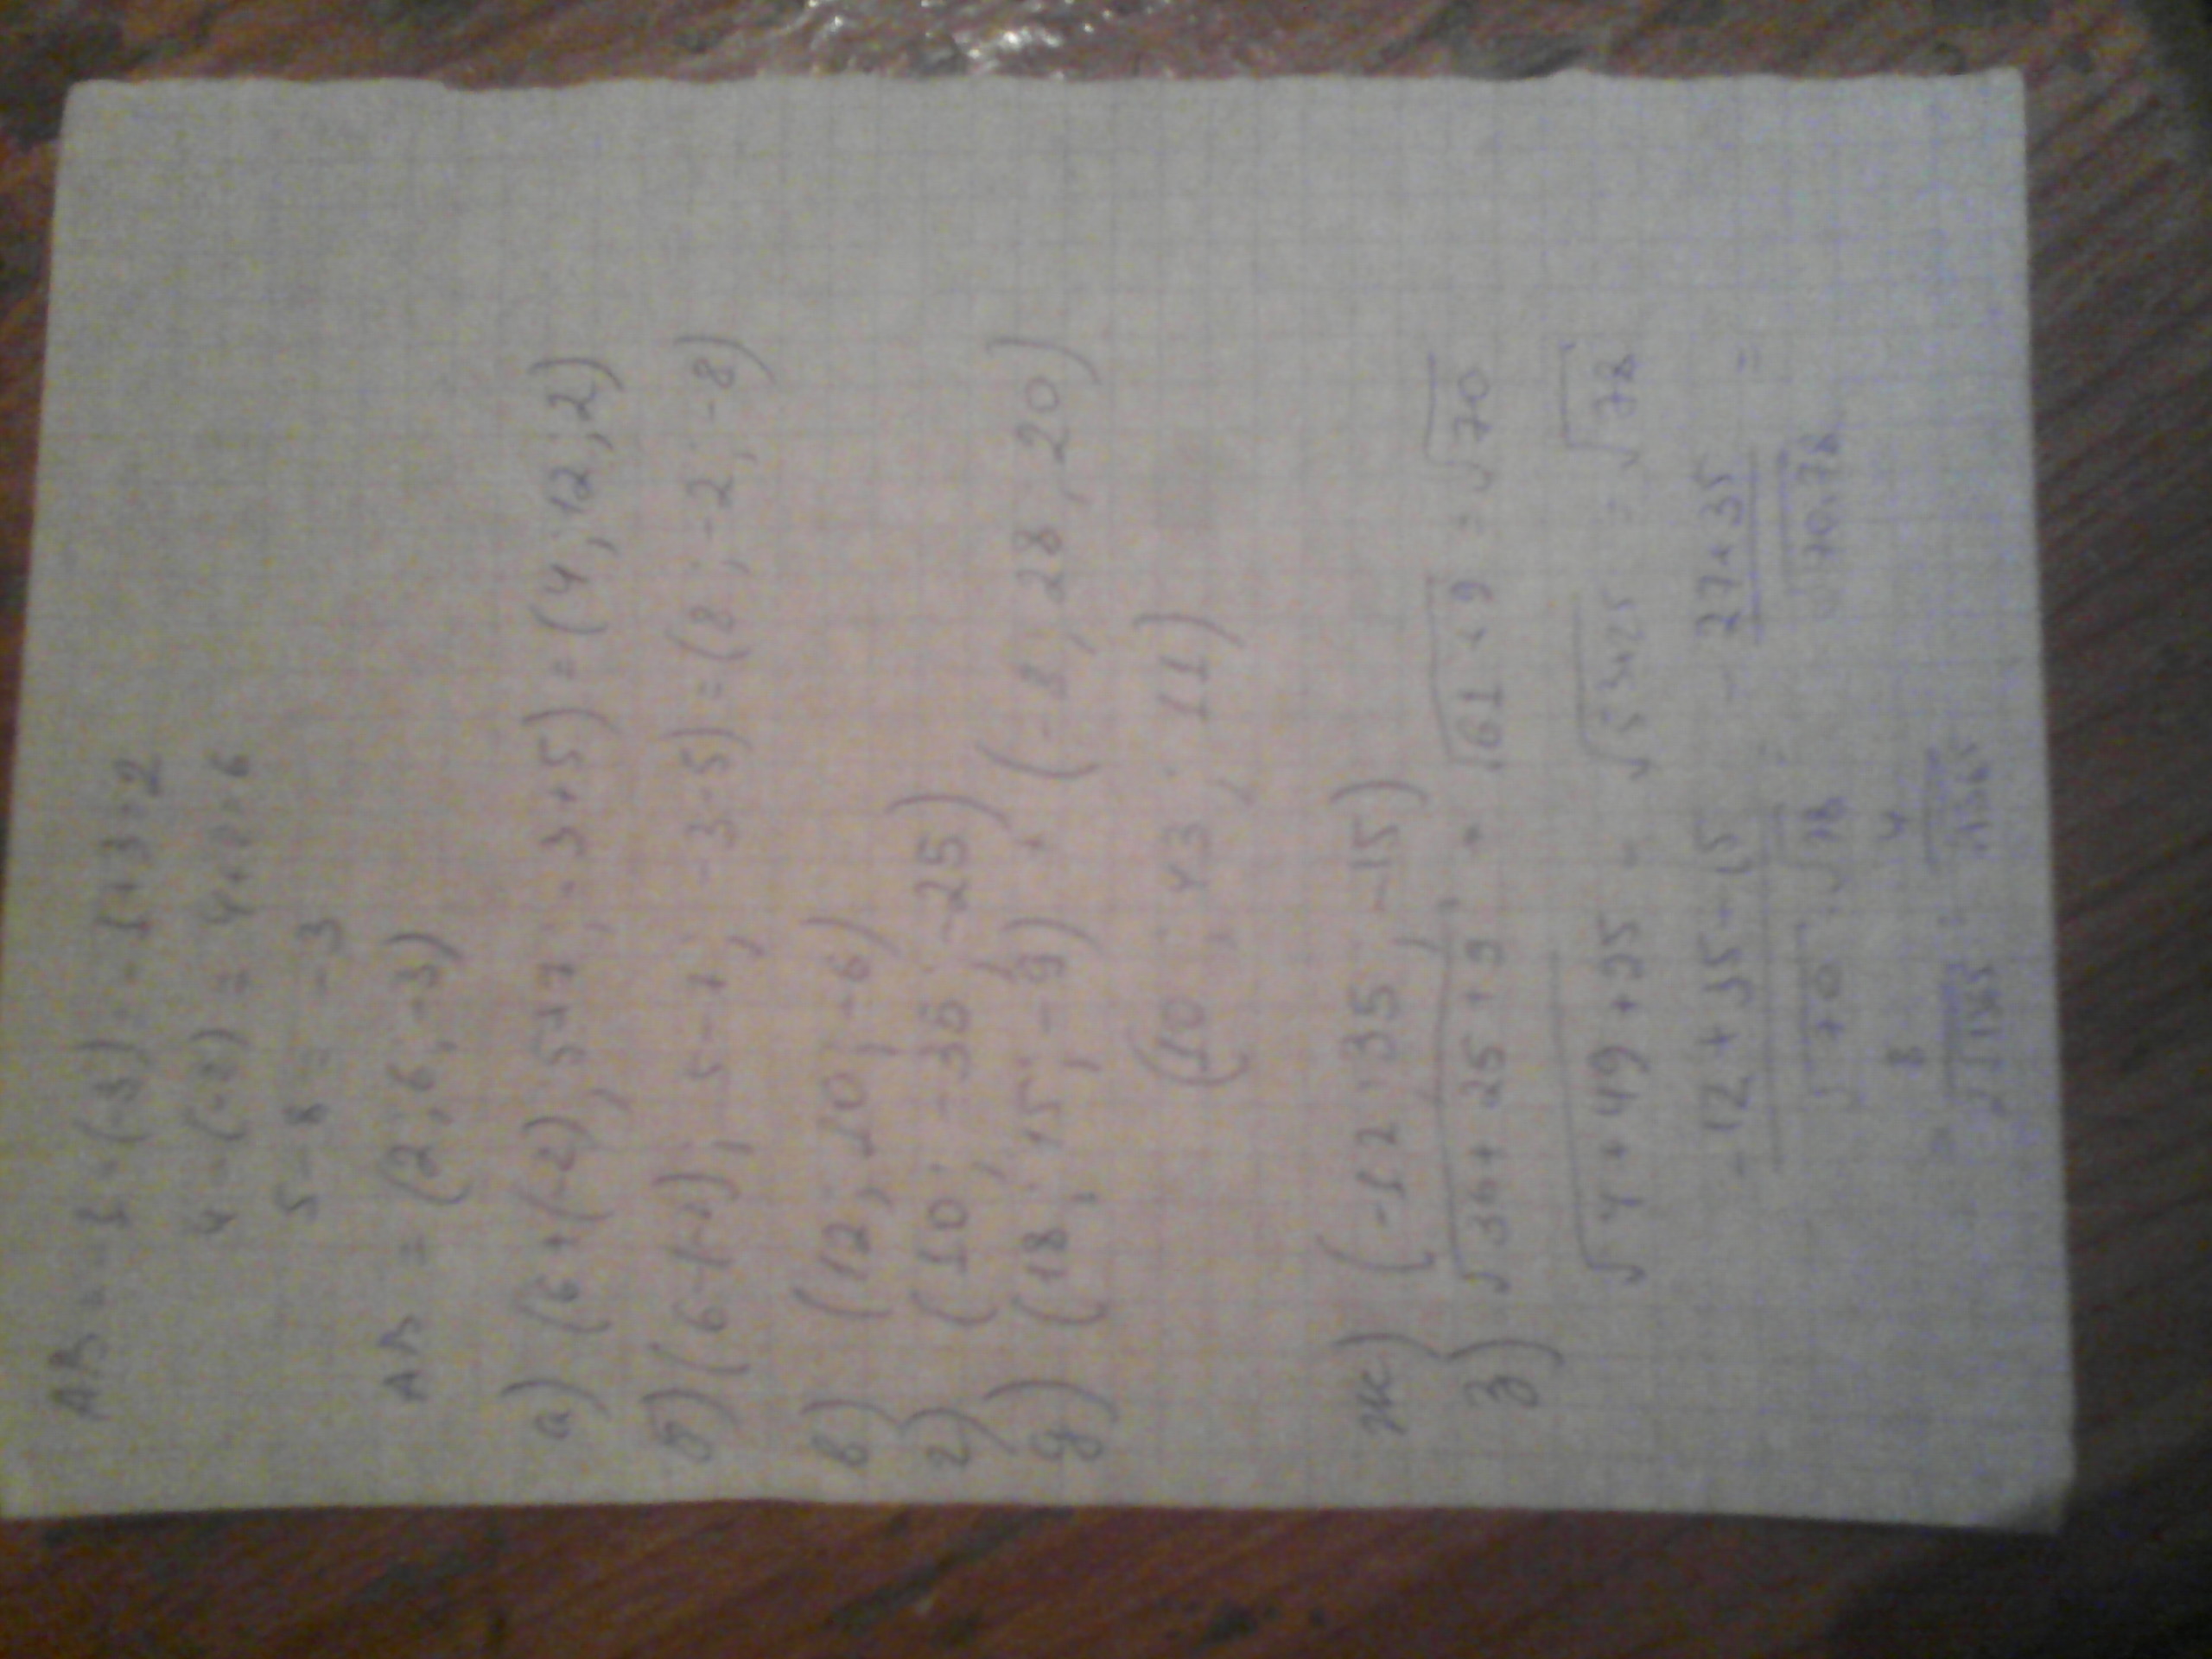 AB = -1-(-3) = -1+3=2
4-(-2) = 4+2=6
5-8 = -3
AB = (2; 6; -3)
а) (6+(-2); 5+7; -3+5) = (4; 12; 2)
б) (6-(-2); 5-7; -3-5) = (8; -2; -8)
в) (12; 10; -6)
г) (10; -35; -25)
д) (18; 15; -9) + (-8; 28; 20)
(10; 43; 11)
ж) (-12; 35; -15)
з) √36+25+9 = √61+9 = √70
√4+49+25 = √53+25 = √78
-12+35-15
-27+35
√70 · √78
√70·78
8
4